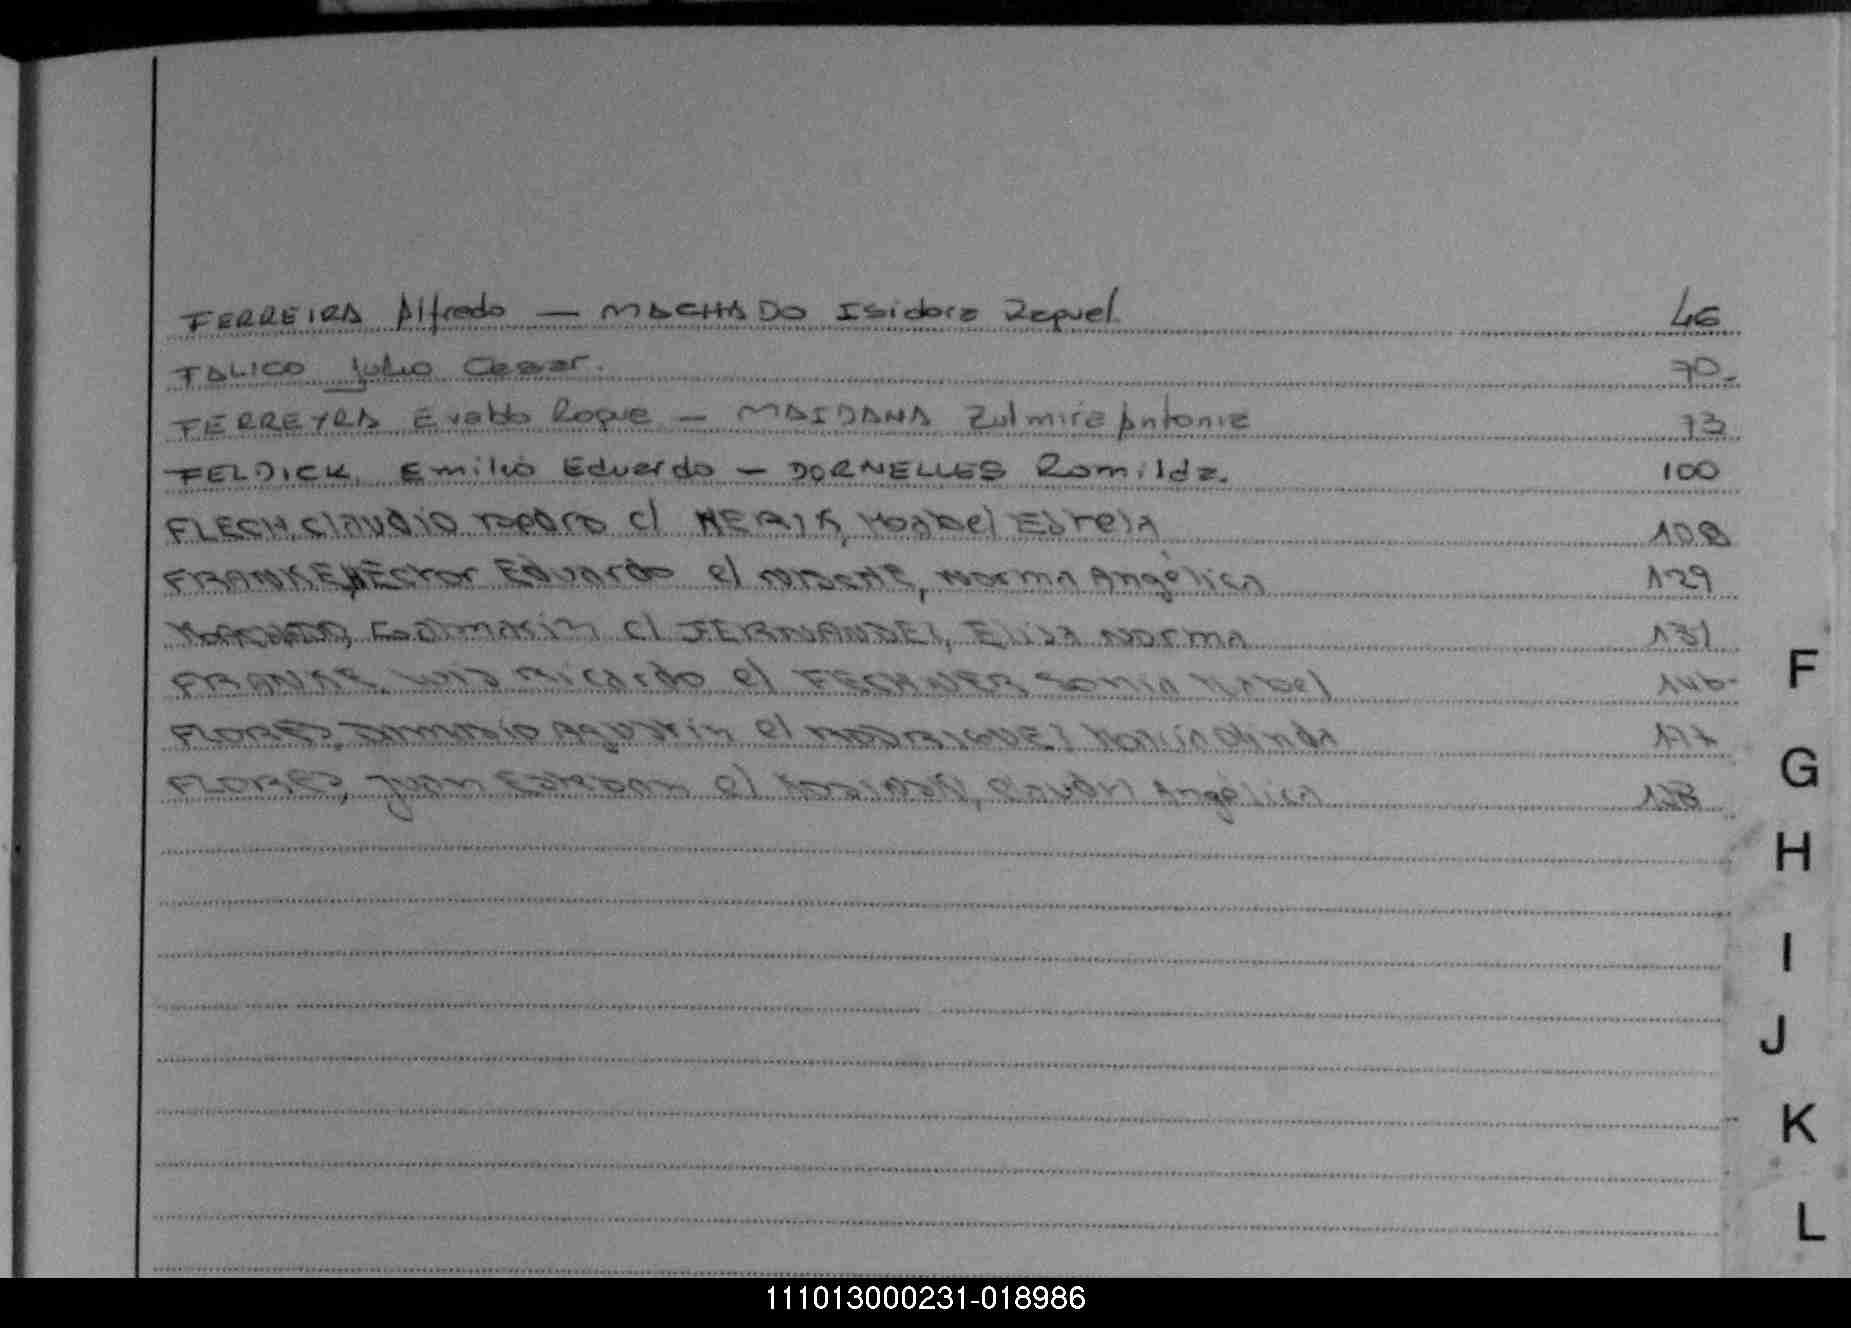 FERREIRA Alfredo — MACHADO Isidora Raquel 46
TALICO Julio Cesar. 70-
FERREYRA Evaldo Roque — MAIDANA Zulmira Antonia 73
FELDICK, Emilio Eduardo — DORNELLES Romilda. 100
FLECH, Claudio c/ Mabel Estela 108
FRANKE, Héctor Eduardo c/ Norma Angélica 129
c/ FERNANDEZ, Elisa Norma 131
FRANKE, Luis Ricardo c/ FECHNER Sonia Mabel 146-
FLORES, Agustín c/ RODRIGUEZ María
FLORES, Juan Esteban c/ Angélica
F
G
H
I
J
K
L
111013000231-018986